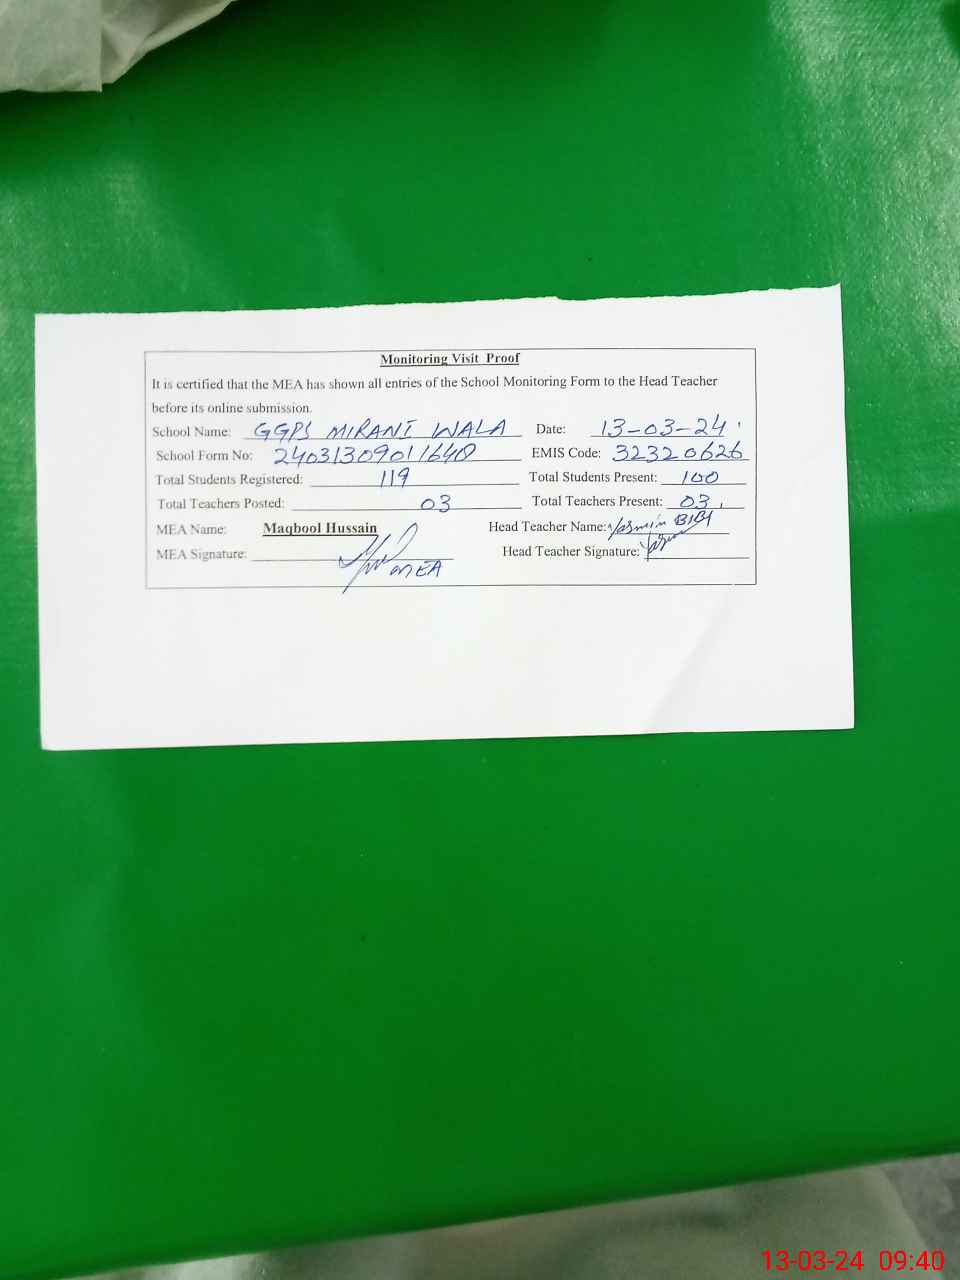 Monitoring Visit Proof
It is certified that the MEA has shown all entries of the School Monitoring Form to the Head Teacher
before its online submission.
School Name: GGPS MIRANI WALA Date: 13-03-24
School Form No: 24031309011640 EMIS Code: 32320626
Total Students Registered: 119 Total Students Present: 100
Total Teachers Posted: 03 Total Teachers Present: 03
MEA Name: Maqbool Hussain Head Teacher Name: Yasmin BIBI
MEA Signature: MEA Head Teacher Signature:
13-03-24 09:40